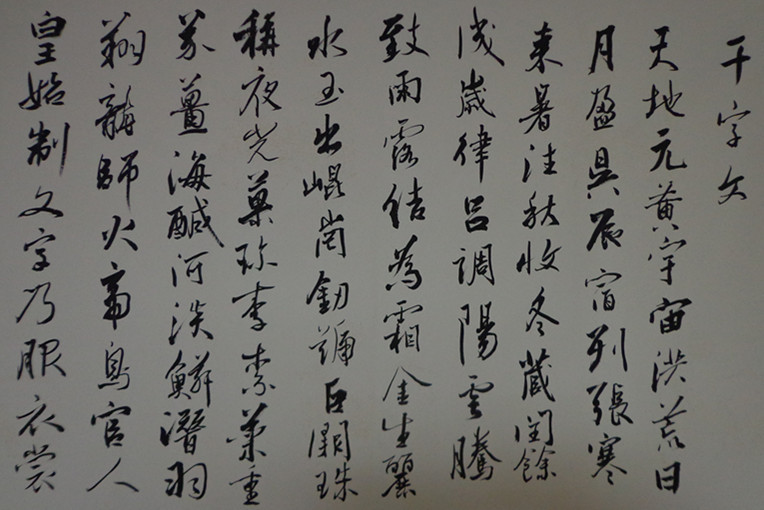 千字文
天地元黄宇宙洪荒日
月盈昃辰宿列張寒
来暑往秋收冬藏閏餘
成歲律呂調陽雲騰
致雨露結為霜金生麗
水玉出崐崗劍號巨闕珠
稱夜光菓珍李柰菜重
芥薑海鹹河淡鱗潛羽
翔龍師火帝鳥官人
皇始制文字乃服衣裳